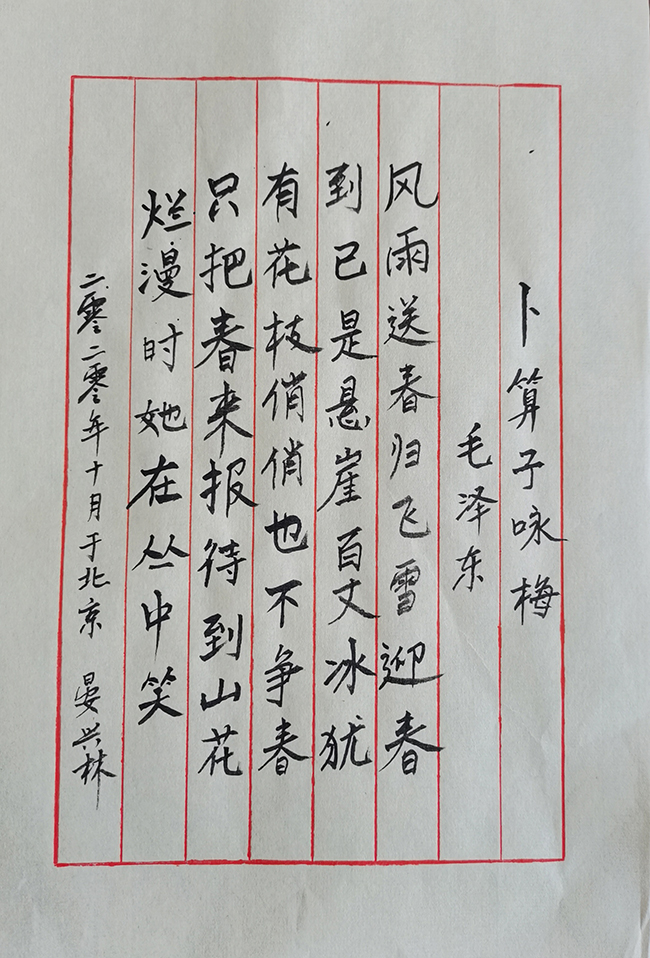 卜算子咏梅
毛泽东
风雨送春归飞雪迎春
到已是悬崖百丈冰犹
有花枝俏俏也不争春
只把春来报待到山花
烂漫时她在丛中笑
二零二零年十月于北京 晏兴林